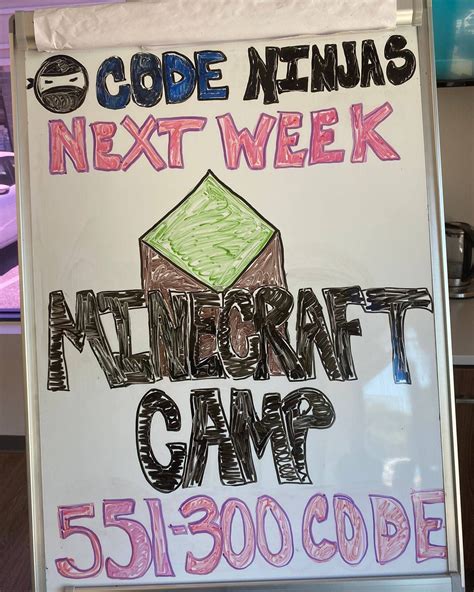 CODE NINJAS
NEXT WEEK
MINECRAFT
CAMP
551-300CODE